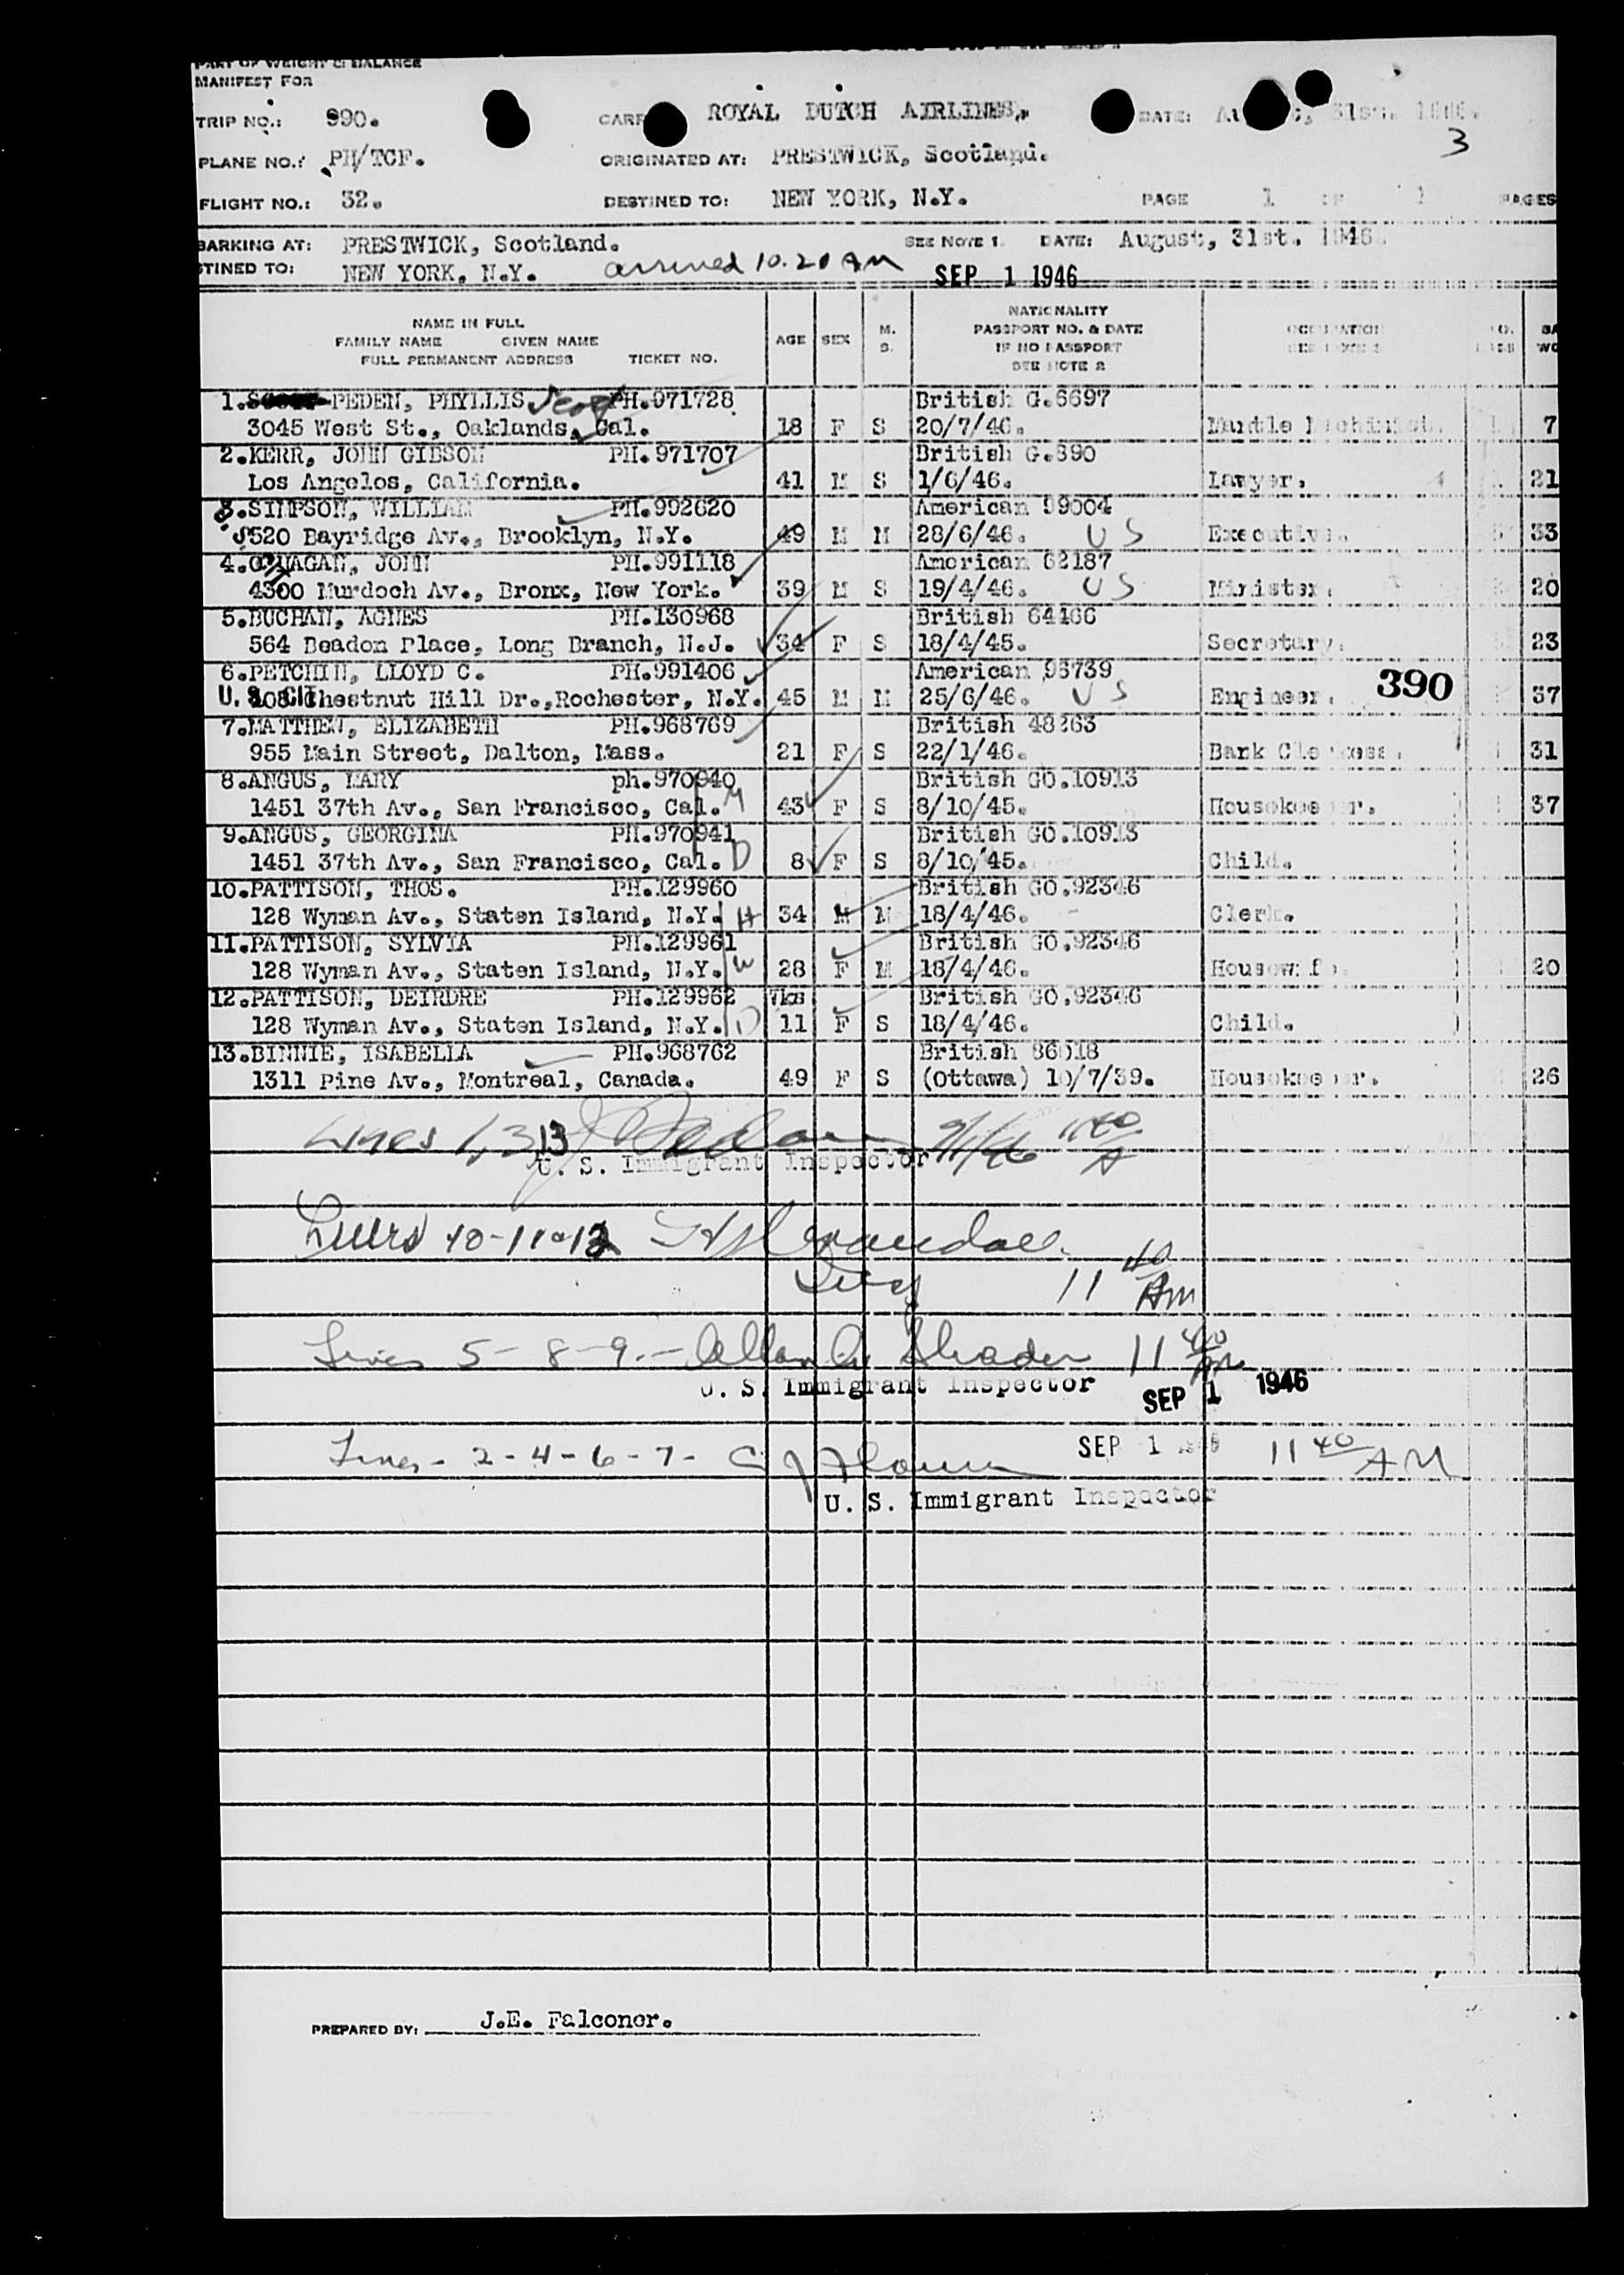 PART OF WEIGHT & BALANCE
MANIFEST FOR
TRIP NO.: 990. CARR ROYAL DUTCH AIRLINES. DATE: 31st. 1946.
3
PLANE NO.: PH/TCF. ORIGINATED AT: PRESTWICK, Scotland.
FLIGHT NO.: 32. DESTINED TO: NEW YORK, N.Y. PAGE 1 OF 1 PAGES
BARKING AT: PRESTWICK, Scotland. SEE NOTE 1. DATE: August, 31st. 1946.
TINED TO: NEW YORK, N.Y. arrived 10.20 AM SEP 1 1946
NAME IN FULL
FAMILY NAME GIVEN NAME
FULL PERMANENT ADDRESS TICKET NO.
AGE SEX M. S.
NATIONALITY
PASSPORT NO. & DATE
IF NO PASSPORT
SEE NOTE 2
OCCUPATION
1. PEDEN, PHYLLIS PH.971728 British G.6697
3045 West St., Oaklands, Cal. 18 F S 20/7/46. 7
2.KERR, JOHN GIBSON PH.971707 British G.890
Los Angelos, California. 41 M S 1/6/46. Lawyer. 21
3.SIMPSON, WILLIAM PH.992620 American 99004
520 Bayridge Av., Brooklyn, N.Y. 49 M M 28/6/46. US Executive. 33
4.O'HAGAN, JOHN PH.991118 American 62187
4300 Murdoch Av., Bronx, New York. 39 M S 19/4/46. US Minister. 20
5.BUCHAN, AGNES PH.130968 British 64166
564 Beadon Place, Long Branch, N.J. 34 F S 18/4/45. Secretary. 23
6.PETCHIN, LLOYD C. PH.991406 American 93739
U. S. CIT Chestnut Hill Dr.,Rochester, N.Y. 45 M M 25/6/46. US Engineer. 390 37
7.MATTHEW, ELIZABETH PH.968769 British 48263
955 Main Street, Dalton, Mass. 21 F S 22/1/46. Bank Clerkess. 31
8.ANGUS, MARY ph.970940 British GO.10913
1451 37th Av., San Francisco, Cal. M 43 F S 8/10/45. Housekeeper. 37
9.ANGUS, GEORGINA PH.970941 British GO.10913
1451 37th Av., San Francisco, Cal. D 8 F S 8/10/45. Child.
10.PATTISON, THOS. PH.129960 British GO.92346
128 Wyman Av., Staten Island, N.Y. H 34 M M 18/4/46. Clerk.
11.PATTISON, SYLVIA PH.129961 British GO.92346
128 Wyman Av., Staten Island, N.Y. W 28 F M 18/4/46. Housewife. 20
12.PATTISON, DEIRDRE PH.129962 Wks British GO.92346
128 Wyman Av., Staten Island, N.Y. D 11 F S 18/4/46. Child.
13.BINNIE, ISABELLA PH.968762 British
1311 Pine Av., Montreal, Canada. 49 F S (Ottawa) 10/7/39. Housekeeper. 26
Lines 1, 3 13 9/1/46 11 40 A
U. S. Immigrant Inspector
10-11-12
Insp 11 40 AM
Lines 5 - 8 - 9. - Allan Shader 11 40 AM
U. S. Immigrant Inspector SEP 1 1946
Lines - 2 - 4 - 6 - 7 - SEP 1 1946 11 40 AM
U. S. Immigrant Inspector
PREPARED BY: J.E. Falconer.